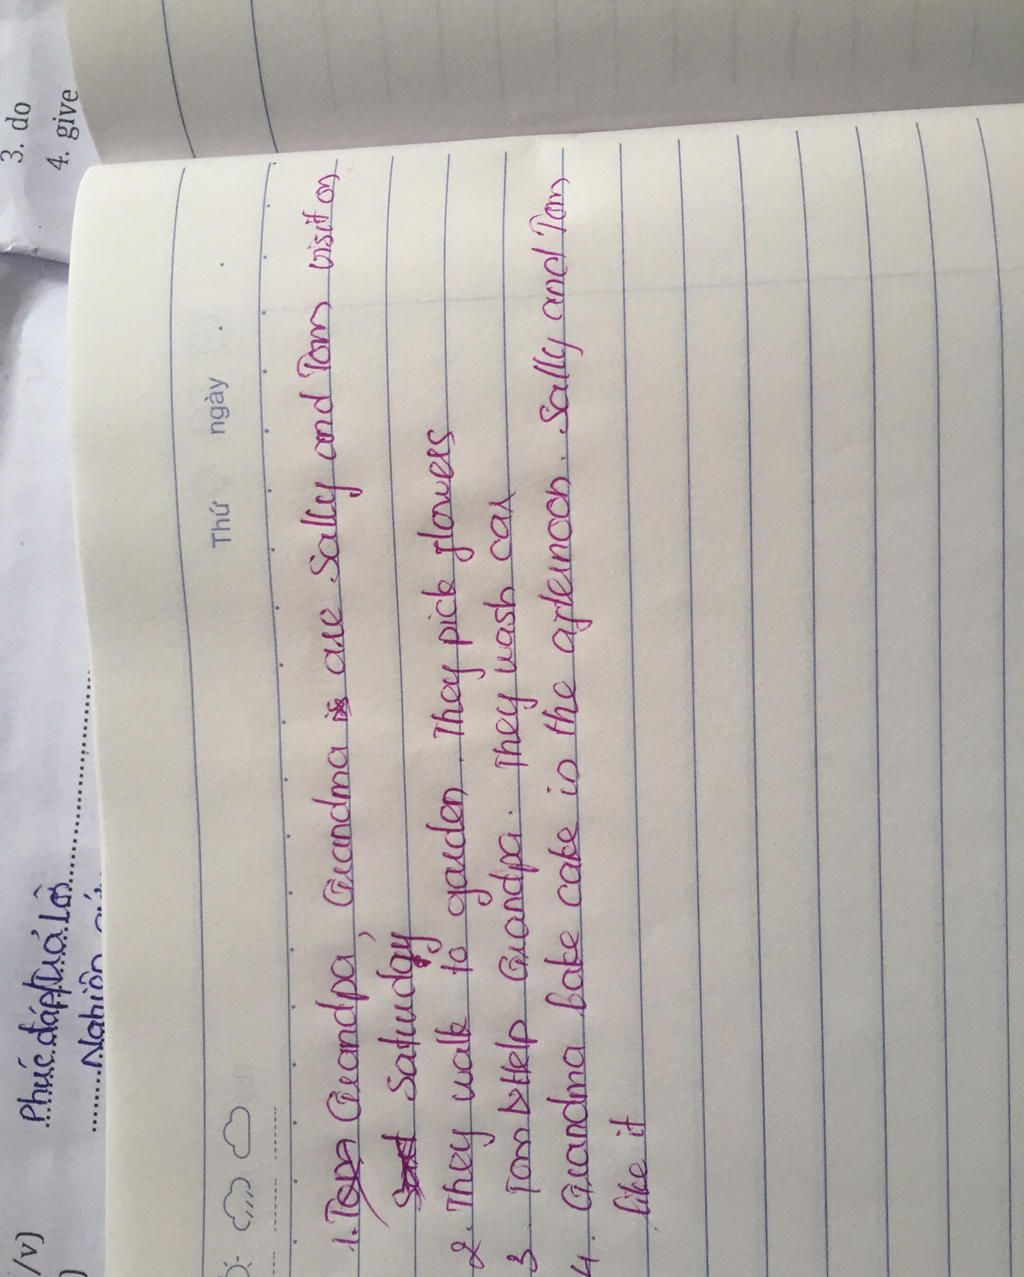 3. do
4. give
Phúc đáp
/v)
Thứ ngày
1. Grandpa, Grandma are Sally and Tom visit on
Saturday
2. They walk to garden. They pick flowers
3. Tom Help Grandpa. They wash car
4. Grandma bake cake is the afternoon. Sally and Tom
like it